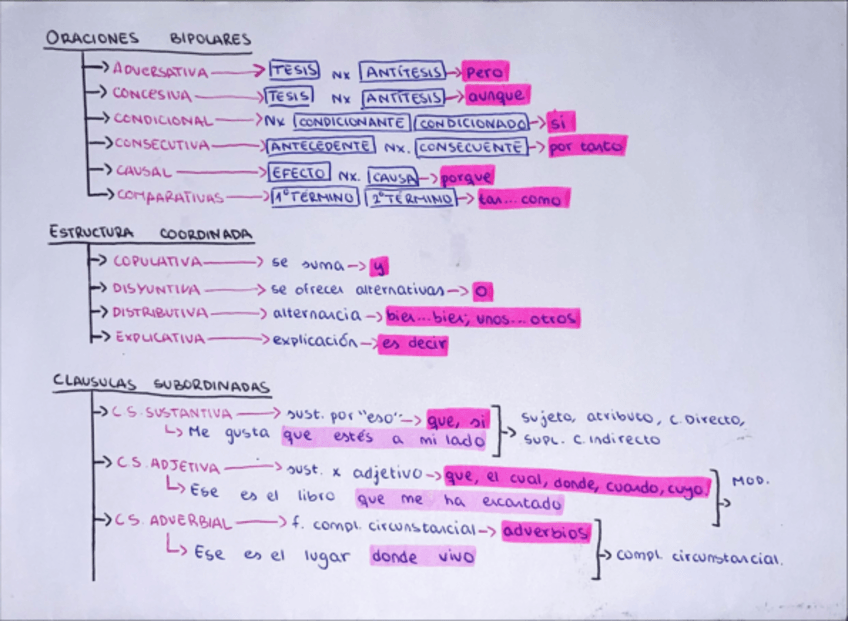 ORACIONES BIPOLARES
ADVERSATIVA → TESIS NX ANTÍTESIS → pero
CONCESIVA → TESIS NX ANTÍTESIS → aunque
CONDICIONAL → NX CONDICIONANTE CONDICIONADO → si
CONSECUTIVA → ANTECEDENTE NX. CONSECUENTE → por tanto
CAUSAL → EFECTO NX. CAUSA → porque
COMPARATIVAS → 1º TÉRMINO 2º TÉRMINO → tan... como
ESTRUCTURA COORDINADA
COPULATIVA → se suma → y
DISYUNTIVA → se ofrecen alternativas → o
DISTRIBUTIVA → alternancia → bien...bien, unos...otros
EXPLICATIVA → explicación → es decir
CLAUSULAS SUBORDINADAS
C.S. SUSTANTIVA → sust. por "eso" → que, si
Me gusta que estés a mi lado
Sujeto, atributo, C. Directo,
Supl. C. indirecto
C.S. ADJETIVA → sust. x adjetivo → que, el cual, donde, cuando, cuyo.
Ese es el libro que me ha encantado
MOD.
C.S. ADVERBIAL → f. compl. circunstancial → adverbios
Ese es el lugar donde vivo
compl. circunstancial.